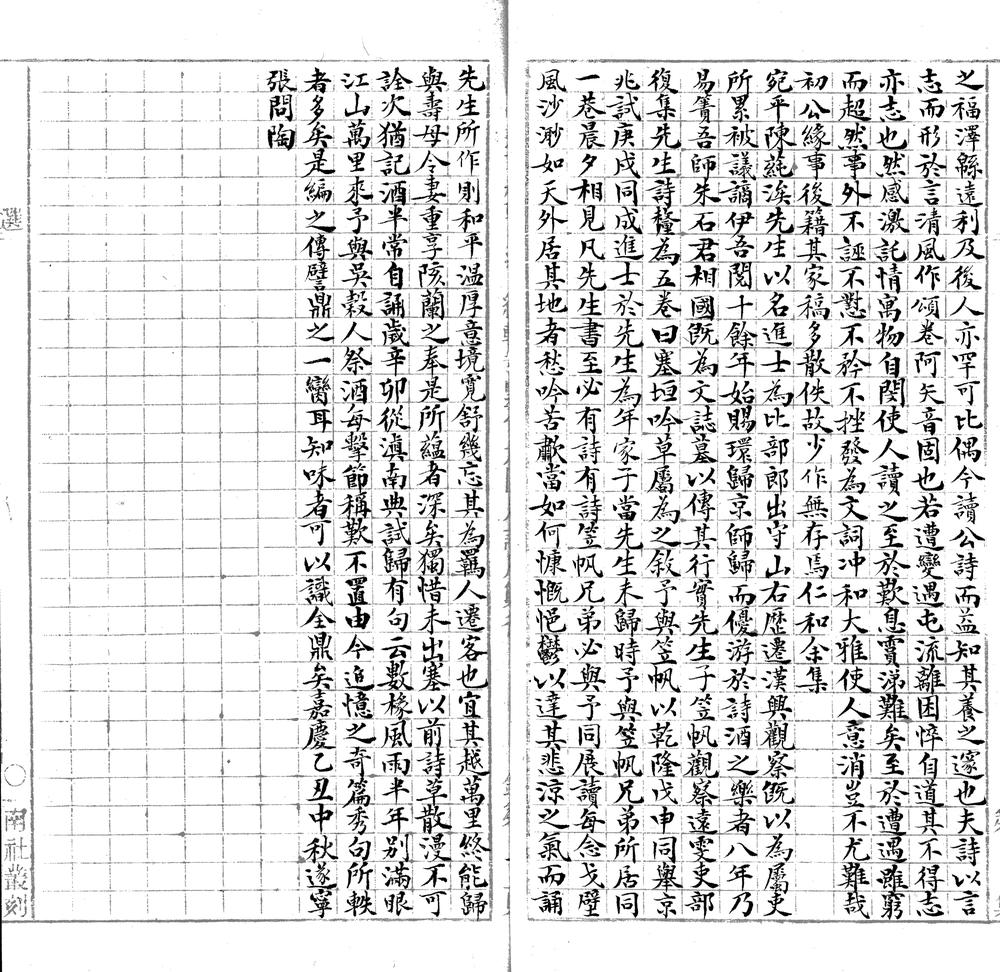 之福澤緜遠利及後人亦罕可比偶今讀公詩而益知其養之邃也夫詩以言
志而形於言清風作頌卷阿矢音固也若遭變遇屯流離困悴自道其不得志
亦志也然感激託情寓物自閔使人讀之至於歎息賈涕難矣至於遭遇雖窮
而超然事外不誣不懟不矜不挫發為文詞冲和大雅使人意消豈不尤難哉
初公緣事後籍其家稿多散佚故少作無存焉仁和余集
宛平陳蒓涘先生以名進士為比部郎出守山右歷遷漢興觀察既以為屬吏
所累被議謫伊吾閱十餘年始賜環歸京師歸而優游於詩酒之樂者八年乃
易簀吾師朱石君相國既為文誌墓以傳其行實先生子笠帆觀察遠雯吏部
復集先生詩釐為五卷曰塞垣吟草屬為之敘予與笠帆以乾隆戊申同舉京
兆試庚戌同成進士於先生為年家子當先生未歸時予與笠帆兄弟所居同
一巷晨夕相見凡先生書至必有詩有詩笠帆兄弟必與予同展讀每念戈壁
風沙渺如天外居其地者愁吟苦歗當如何慷慨悒鬱以達其悲涼之氣而誦
先生所作則和平溫厚意境寬舒幾忘其為羈人遷客也宜其越萬里終能歸
與壽母令妻重享陔蘭之奉是所蘊者深矣獨惜未出塞以前詩草散漫不可
詮次猶記酒半常自誦歲辛卯從滇南典試歸有句云數椽風雨半年別滿眼
江山萬里來予與吳穀人祭酒每擊節稱歎不置由今追憶之奇篇秀句所軼
者多矣是編之傳譬鼎之一臠耳知味者可以識全鼎矣嘉慶乙丑中秋遂寧
張問陶
選
南社叢刻